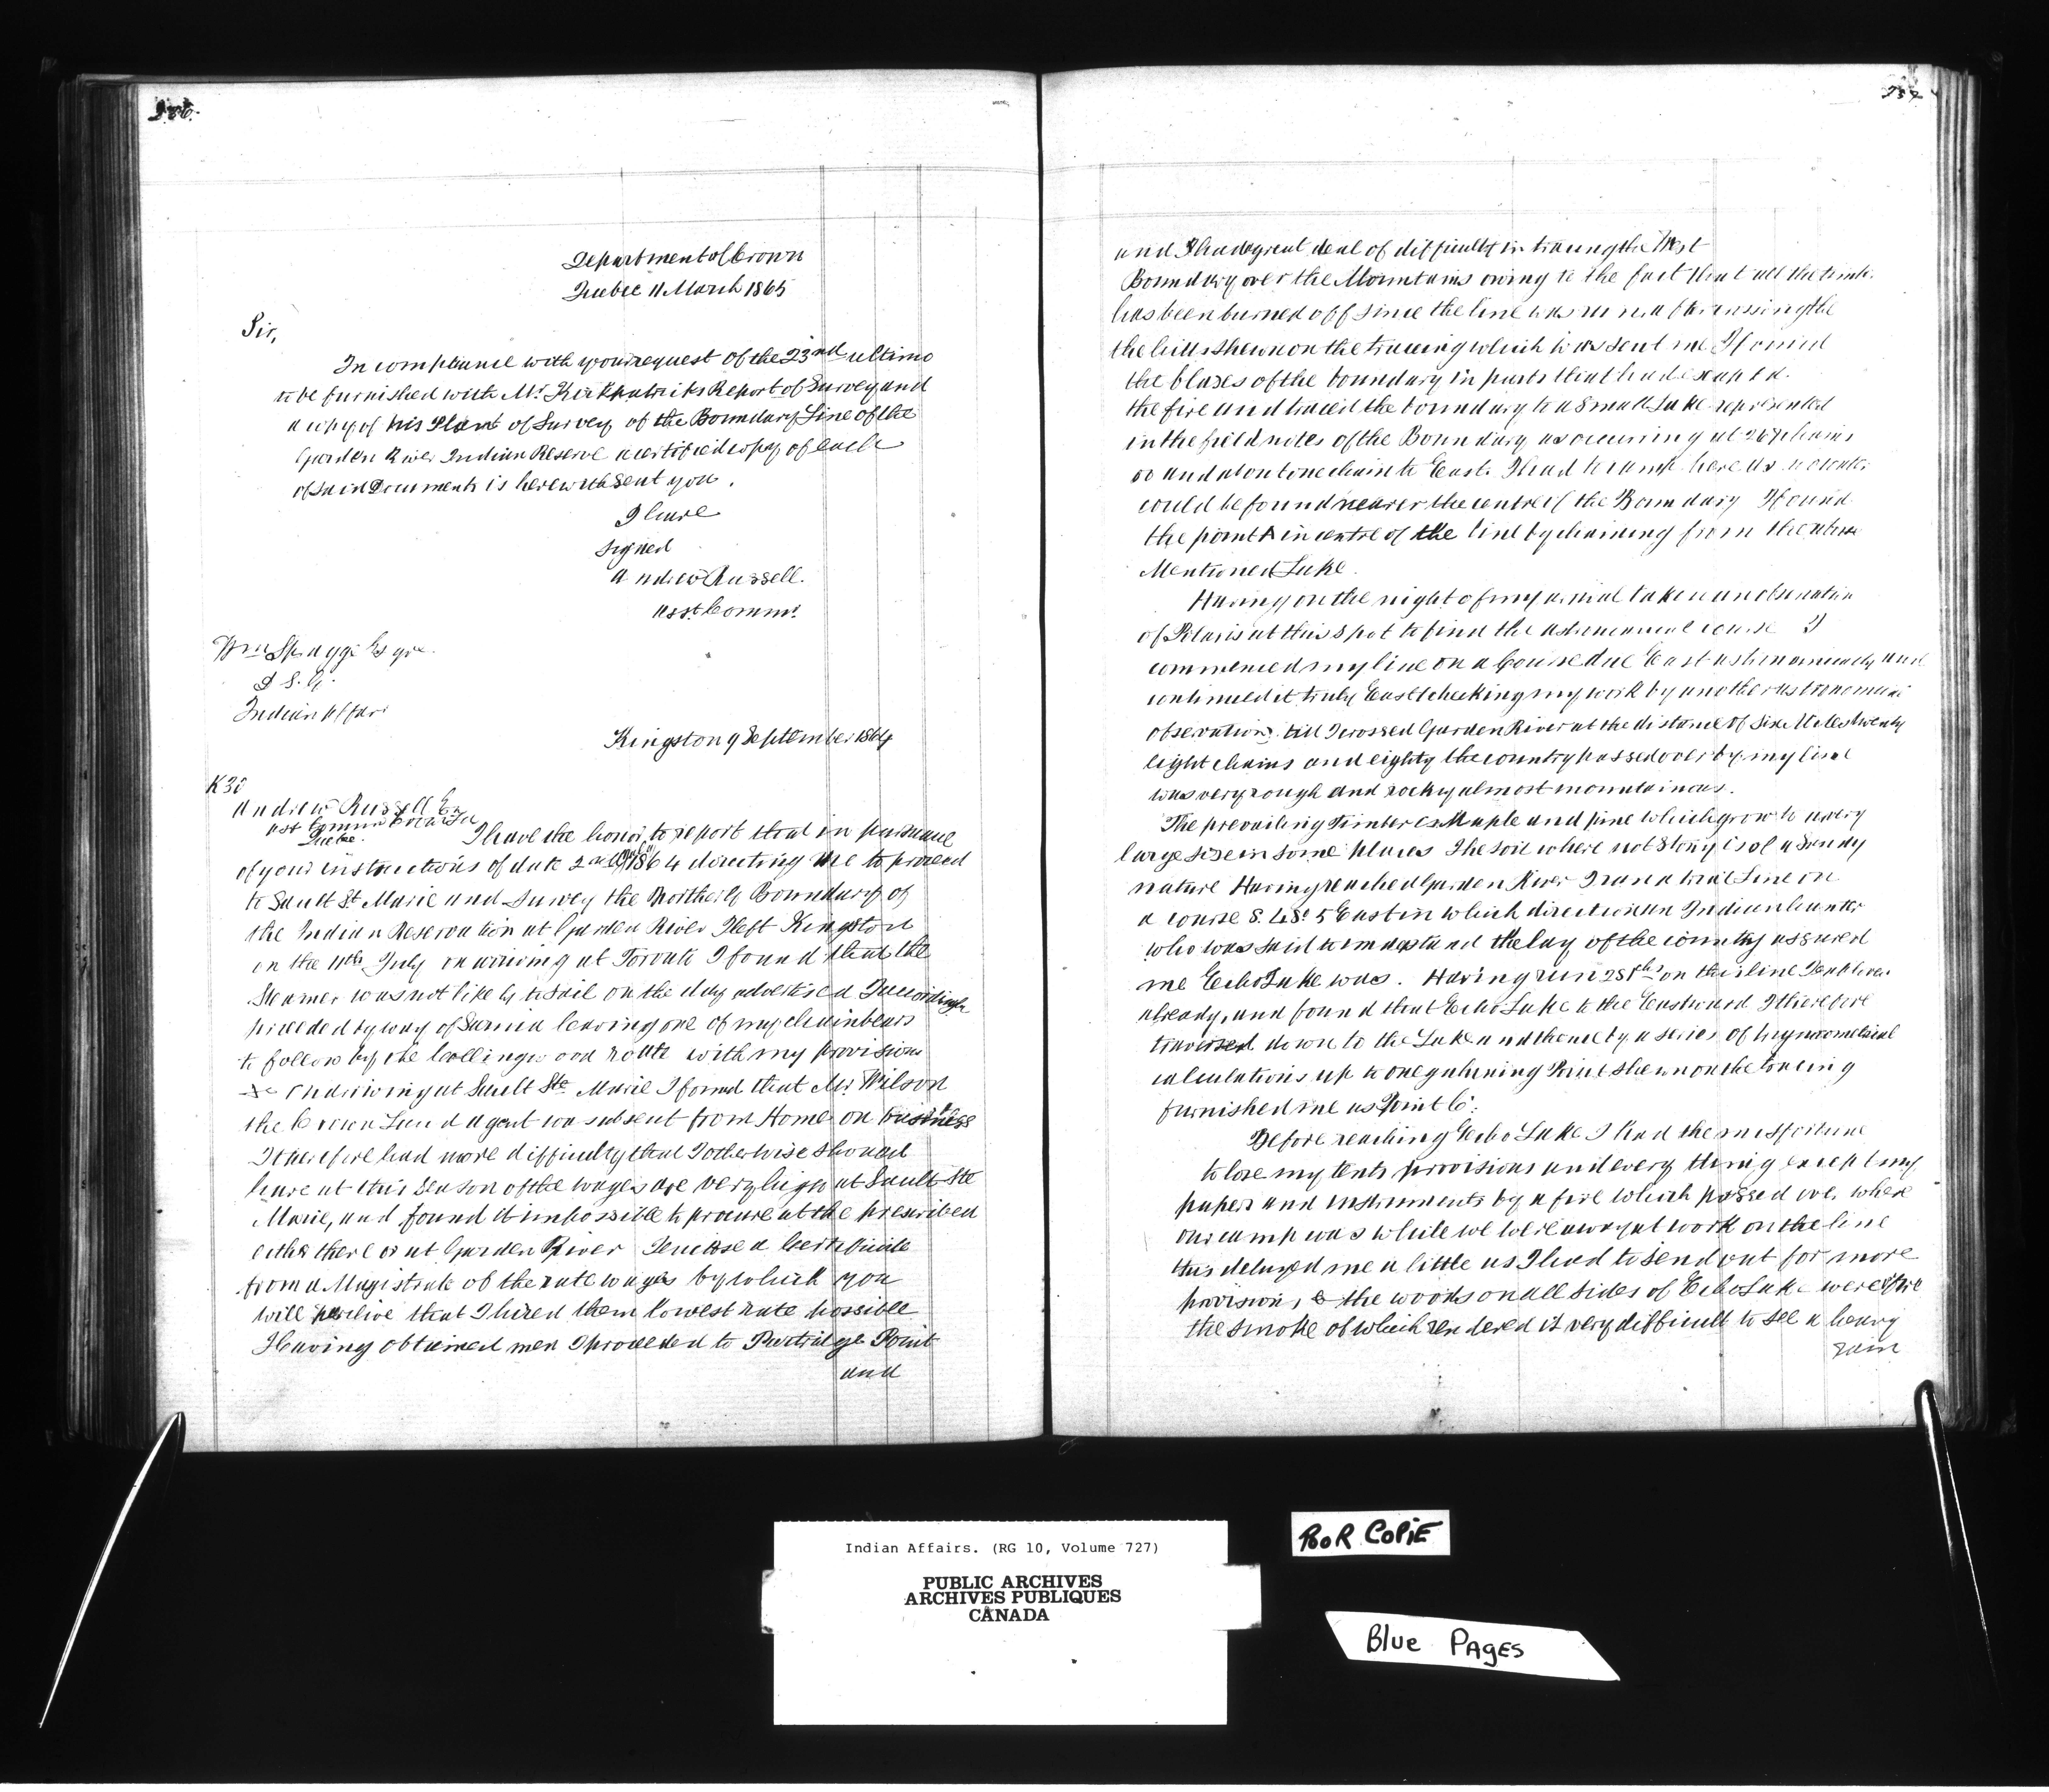 Department of Crown
Quebec 11 March 1865
Sir,
In compliance with your request of the 23nd ultimo
to be furnished with Mr. Kirkpatricks Report of Survey and
a copy of his Plan of Survey of the Boundary Line of the
Garden River Indian Reserve a certified copy of each
of said Documents is herewith sent you.
I have
Signed
Andrew Russell.
asst Commr.
Wm Spragge Esqre.
D S. G.
Indian Affairs
Kingston 9 September 1864
K 30
Andrew Russell Esq
Quebec. I have the honor to report that in pursuance
of your instructions of date 2nd 1864 directing me to proceed
to Sault St Marie and Survey the Northerly Boundary of
the Indian Reservation at Garden River I left Kingston
on the 11th July on arriving at Toronto I found that the
Steamer was not likely to sail on the day advertised I accordingly
proceeded by way of Sarnia leaving one of my chainbears
to follow by the Collingwood route with my provisions
&c On arriving at Sault Ste Marie I found that Mr. Wilson
the Crown Land agent was absent from Home on business
I therefore had more difficulty than I otherwise should
have at this season of the wages are very high at Sault Ste
Marie, and found it impossible to procure at the prescribed
either there or at Garden River I enclose a Certificate
from a Magistrate of the rate wages by which you
will perceive that I hired them lowest rate possible
Having obtained men I proceeded to Partridge Point
and
and I had a great deal of difficulty in tracing the West
Boundary over the Mountains owing to the fact that all the timber
has been burned off since the line was run after crossing the
the hills shewn on the tracing which was sent me I found
the blazes of the boundary in parts that had escaped
the fire and traced the boundary to a Small Lake represented
in the field notes of the Boundary as occurring at 267 chains
00 and about one chain to East. I had to camp here as no water
could be found nearer the centre of the Boundary I found
the point A in centre of the line by chaining from the above
Mentioned Lake.
Having on the night of my arrival taken an observation
of Polaris at this spot to find the astronomical course I
commenced my line on a Course due East astronomically and
continued it truly East checking my work by another astronomical
observation, till I crossed Garden River at the distance of Six Miles twenty
eight chains and eighty the country passed over by my line
was very rough and rocky almost mountainous.
The prevailing timber is Maple and pine which grow to a very
large size in some places The soil where not Stony is of a Sandy
nature Having reached Garden River I ran a trial Line on
a course S. 48.° 5 East in which direction an Indian hunter
who was said to understand the lay of the country assured
me Echo Lake was. Having run 28 chs on this line
already, and found that Echo Lake to the Eastward I therefore
traversed down to the Lake and thence by a series of trigonometrical
calculations up to one gaining Point shewn on the tracing
furnished me as Point C.
Before reaching Echo Lake I had the misfortune
to lose my tents provisions and every thing except my
papers and instruments by a fire which passed over where
our camp was while we were away at work on the line
this delayed me a little as I had to send out for more
provision, & the woods on all sides of Echo Lake were fire
the smoke of which rendered it very difficult to see a heavy
rain
Indian Affairs. (RG 10, Volume 727)
PUBLIC ARCHIVES
ARCHIVES PUBLIQUES
CANADA
POOR COPIE
Blue PAges